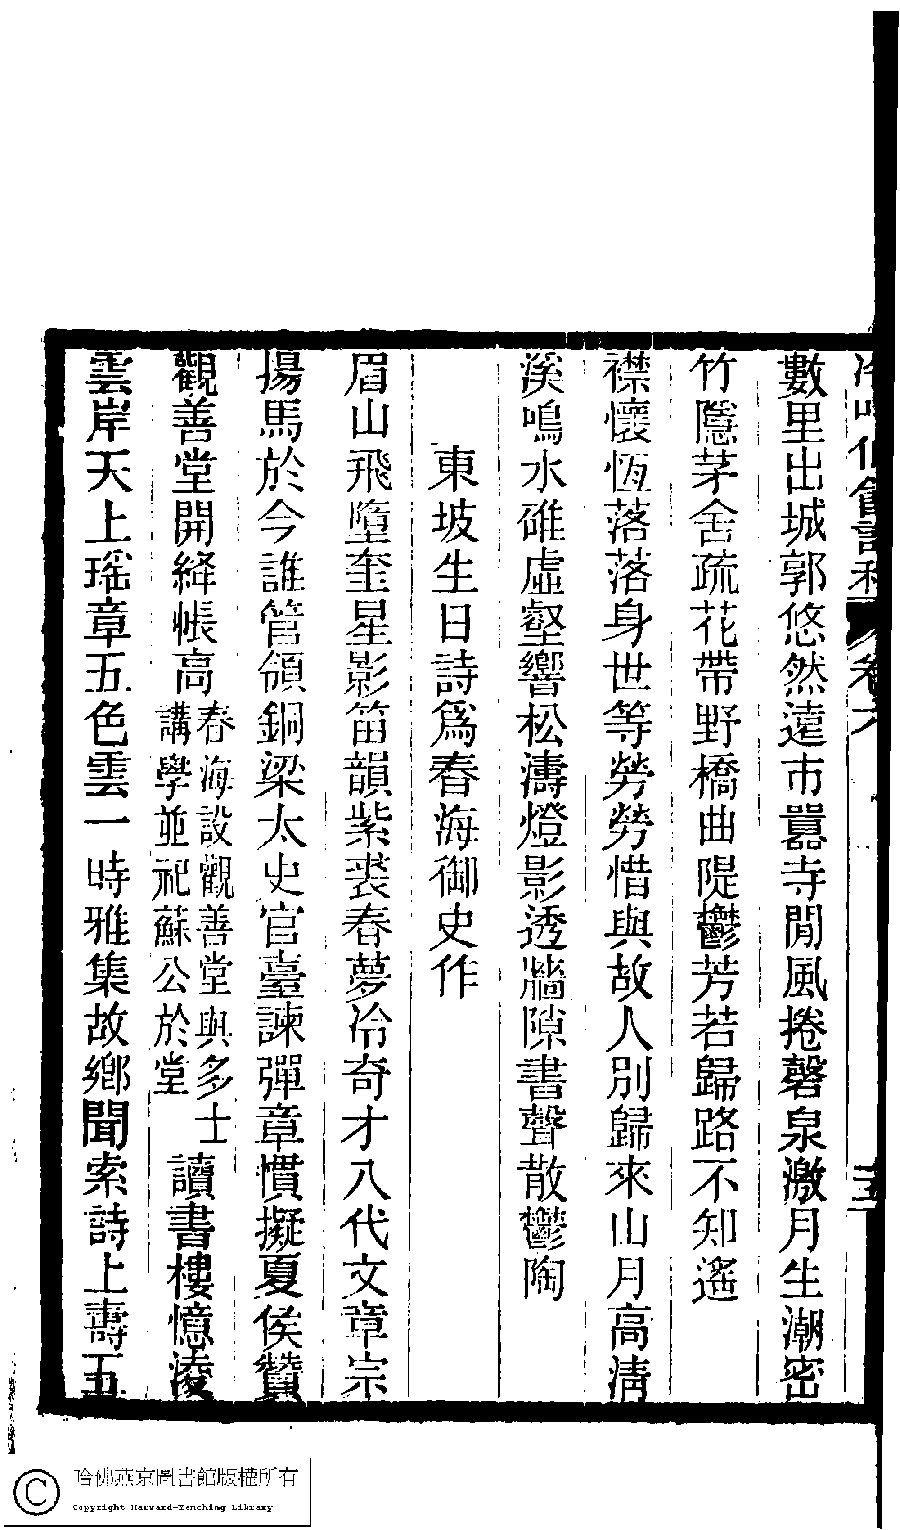 數里出城郭悠然遠市囂寺閒風捲磬泉激月生潮密
竹隱茅舍疏花帶野橋曲隄鬱芳若歸路不知遙
襟懷恆落落身世等勞勞惜與故人別歸來山月高清
溪鳴水碓虛壑響松濤燈影透牆隙書聲散鬱陶
東坡生日詩爲春海御史作
眉山飛墮奎星影笛韻紫裘春夢冷奇才八代文章宗
揚馬於今誰管領銅梁太史官臺諫彈章慣擬夏侯贊
觀善堂開絳帳高春海設觀善堂與多士講學並祀蘇公於堂讀書樓憶淩
雲岸天上瑤章五色雲一時雅集故鄉聞索詩上壽五
卷六
哈佛燕京圖書館版權所有
Copyright Harvard-Yenching Library